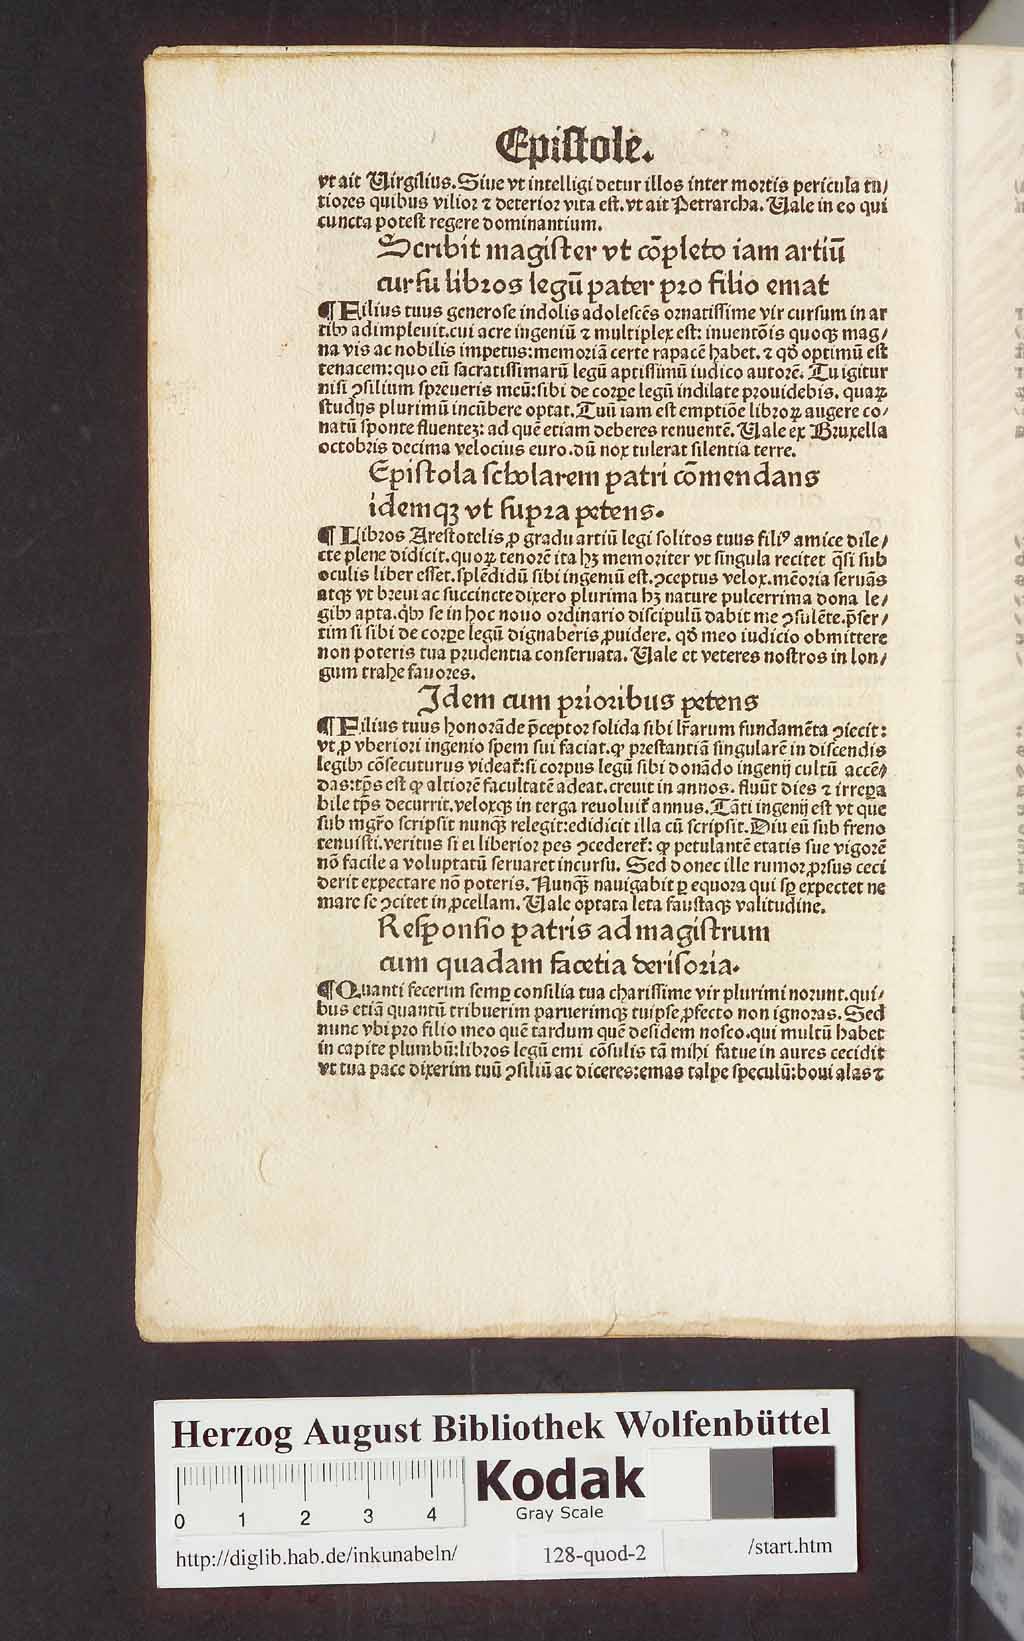 Epistole.
vt ait Virgilius. Siue vt intelligi detur illos inter mortis pericula tu/
tiores quibus vilior ⁊ deterior vita est. vt ait Petrarcha. Vale in eo qui
cuncta potest regere dominantium.
Scribit magister vt cōpleto iam artiū
cursu libros legū pater pro filio emat
¶ Filius tuus generose indolis adolescēs ornatissime vir cursum in ar
tibꝫ adimpleuit. cui acre ingeniū ⁊ multiplex est: inuentōis quoqꝫ mag/
na vis ac nobilis impetus: memoriā certe rapacē habet. ⁊ qđ optimū est
tenacem: quo eū sacratissimarū legū aptissimū iudico autorē. Tu igitur
nisi ꝯsilium spreueris meū: sibi de corpꝑe legū indilate prouidebis. quaꝝ
studijs plurimū incūbere optat. Tuū iam est emptiōe libroꝝ augere co/
natū sponte fluentez: ad quē etiam deberes renuentē. Vale ex Bruxella
octobris decima velocius euro. dū nox tulerat silentia terre.
Epistola scholarem patri cōmendans
idemqꝫ vt supra petens.
¶ Libros Arestotelis ꝓ gradu artiū legi solitos tuus filiꝰ amice dile/
cte plene didicit. quoꝝ tenorē ita hꝫ memoriter vt singula recitet q̄si sub
oculis liber esset. splēdidū sibi ingeniū est. ꝯceptus velox. mēoria seruās
atqꝫ vt breui ac succincte dixero plurima hꝫ nature pulcerrima dona le/
gibꝫ apta. q̇bꝫ se in hoc nouo ordinario discipulū dabit me ꝯsulēte. p̄ser/
tim si sibi de corpe legū dignaberis ꝓuidere. qđ meo iudicio obmittere
non poteris tua prudentia conseruata. Vale et veteres nostros in lon/
gum trahe fauores.
Idem cum prioribus petens
¶ Filius tuus honorāde p̄ceptor solida sibi lr̄arum fundamēta ꝯiecit:
vt ꝓ vberiori ingenio spem sui faciat. ꝙ prestantiā singularē in discendis
legibꝫ cōsecuturus videat̄: si corpus legū sibi donādo ingenij cultū accē/
das: tp̄s est ꝙ altiorē facultatē adeat. creuit in annos. fluūt dies ⁊ irrepa
bile tp̄s decurrit. veloxqꝫ in terga reuoluit̄ annus. Tāti ingenij est vt que
sub mgr̄o scripsit nunqꝫ̄ relegit: edidicit illa cū scripsit. Diu eū sub freno
tenuisti. veritus si ei liberior pes ꝯcederet̄: ꝙ petulantē etatis sue vigorē
nō facile a voluptatū seruaret incursu. Sed donec ille rumor ꝓrsus ceci
derit expectare nō poteris. Nunqꝫ̄ nauigabit ꝑ equora qui sꝑ expectet ne
mare se ꝯcitet in ꝓcellam. Vale optata leta faustaqꝫ valitudine.
Responsio patris ad magistrum
cum quadam facetia derisoria.
¶ Quanti fecerim semꝑ consilia tua charissime vir plurimi norunt. qui/
bus etiā quantū tribuerim paruerimqꝫ tuipse ꝓfecto non ignoras. Sed
nunc vbi pro filio meo quē tardum quē desidem nosco. qui multū habet
in capite plumbū: libros legū emi cōsulis tā mihi fatue in aures cecidit
vt tua pace dixerim tuū ꝯsiliū ac diceres: emas talpe speculū: boui alas ⁊
Herzog August Bibliothek Wolfenbüttel
Kodak
Gray Scale
0 1 2 3 4
http://diglib.hab.de/inkunabeln/ 128-quod-2 /start.htm